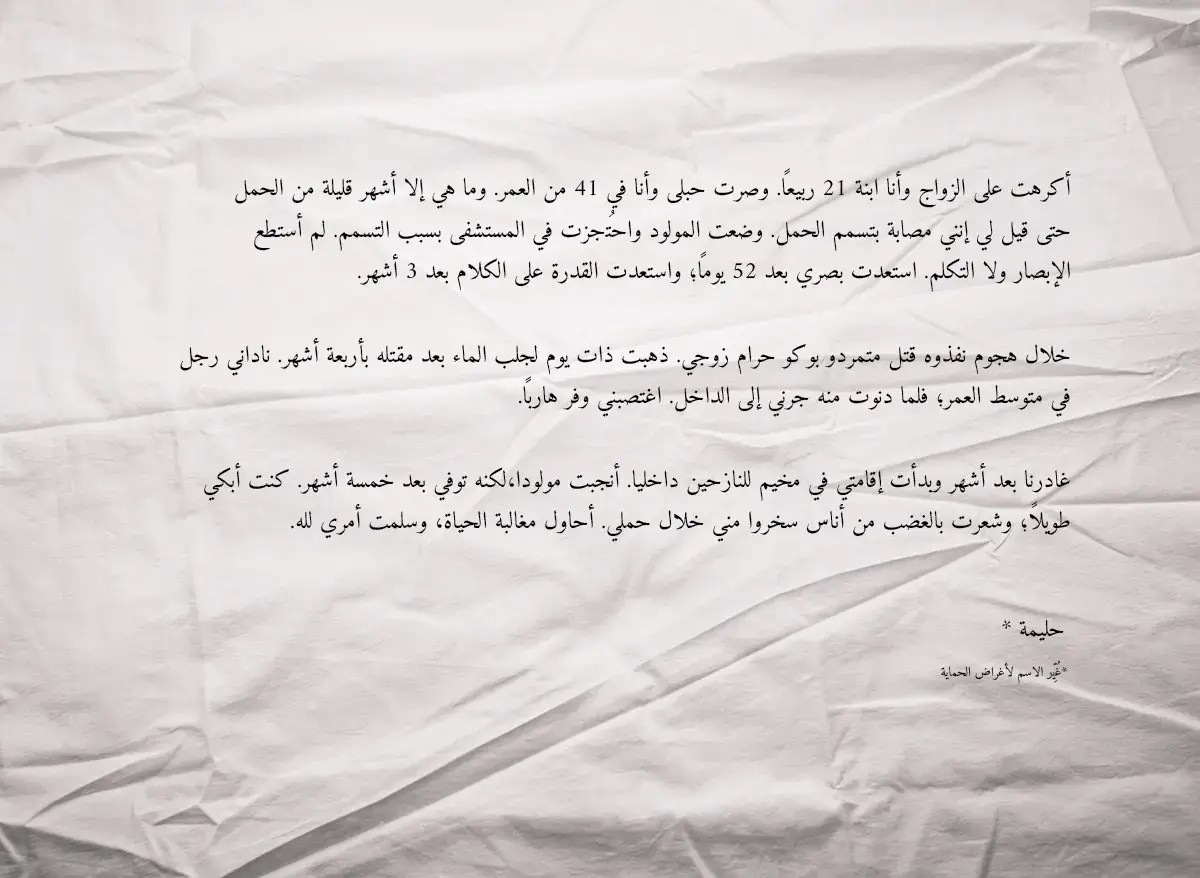 أكرهت على الزواج وأنا ابنة 21 ربيعاً. وصرت حبلى وأنا في 41 من العمر. وما هي إلا أشهر قليلة من الحمل
حتى قيل لي إنني مصابة بتسمم الحمل. وضعت المولود واحتُجزت في المستشفى بسبب التسمم. لم أستطع
الإبصار ولا التكلم. استعدت بصري بعد 52 يوماً؛ واستعدت القدرة على الكلام بعد 3 أشهر.
خلال هجوم نفذوه قتل متمردو بوكو حرام زوجي. ذهبت ذات يوم لجلب الماء بعد مقتله بأربعة أشهر. ناداني رجل
في متوسط العمر؛ فلما دنوت منه جرني إلى الداخل. اغتصبني وفر هارباً.
غادرنا بعد أشهر وبدأت إقامتي في مخيم للنازحين داخليا. أنجبت مولودا،لكنه توفي بعد خمسة أشهر. كنت أبكي
طويلاً؛ وشعرت بالغضب من أناس سخروا مني خلال حملي. أحاول مغالبة الحياة، وسلمت أمري لله.
حليمة *
*غُيِّر الاسم لأغراض الحماية